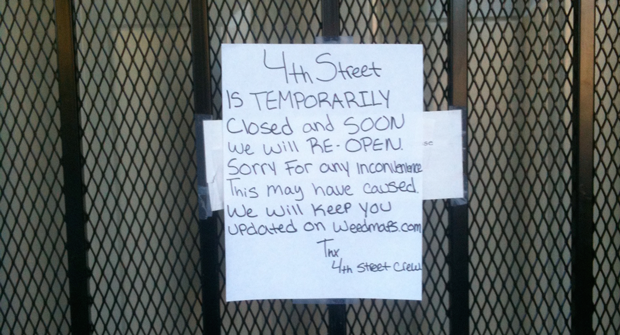 4th Street
IS TEMPORARILY
Closed and SOON
we will RE-OPEN.
Sorry For any inconvenience
This may have caused
We will Keep you
updated on weedmaps.com
Tnx
4th Street Crew